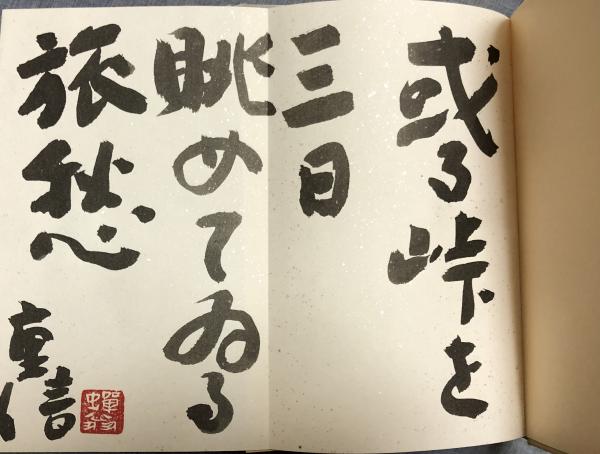 或る峠を
三日
眺めてゐる
旅愁
重信